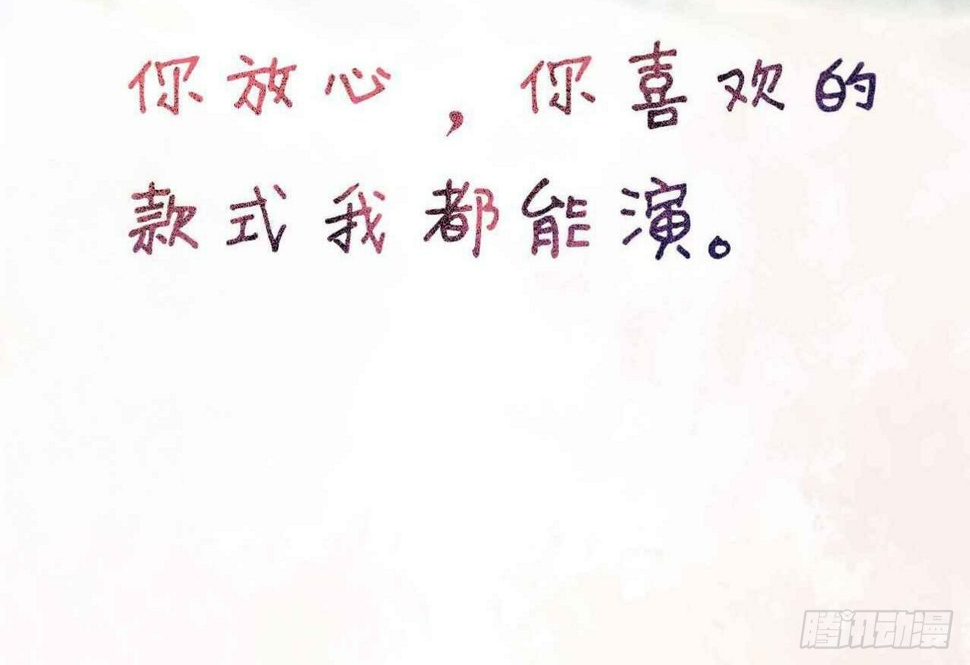 你放心，你喜欢的
款式我都能演。
腾讯动漫